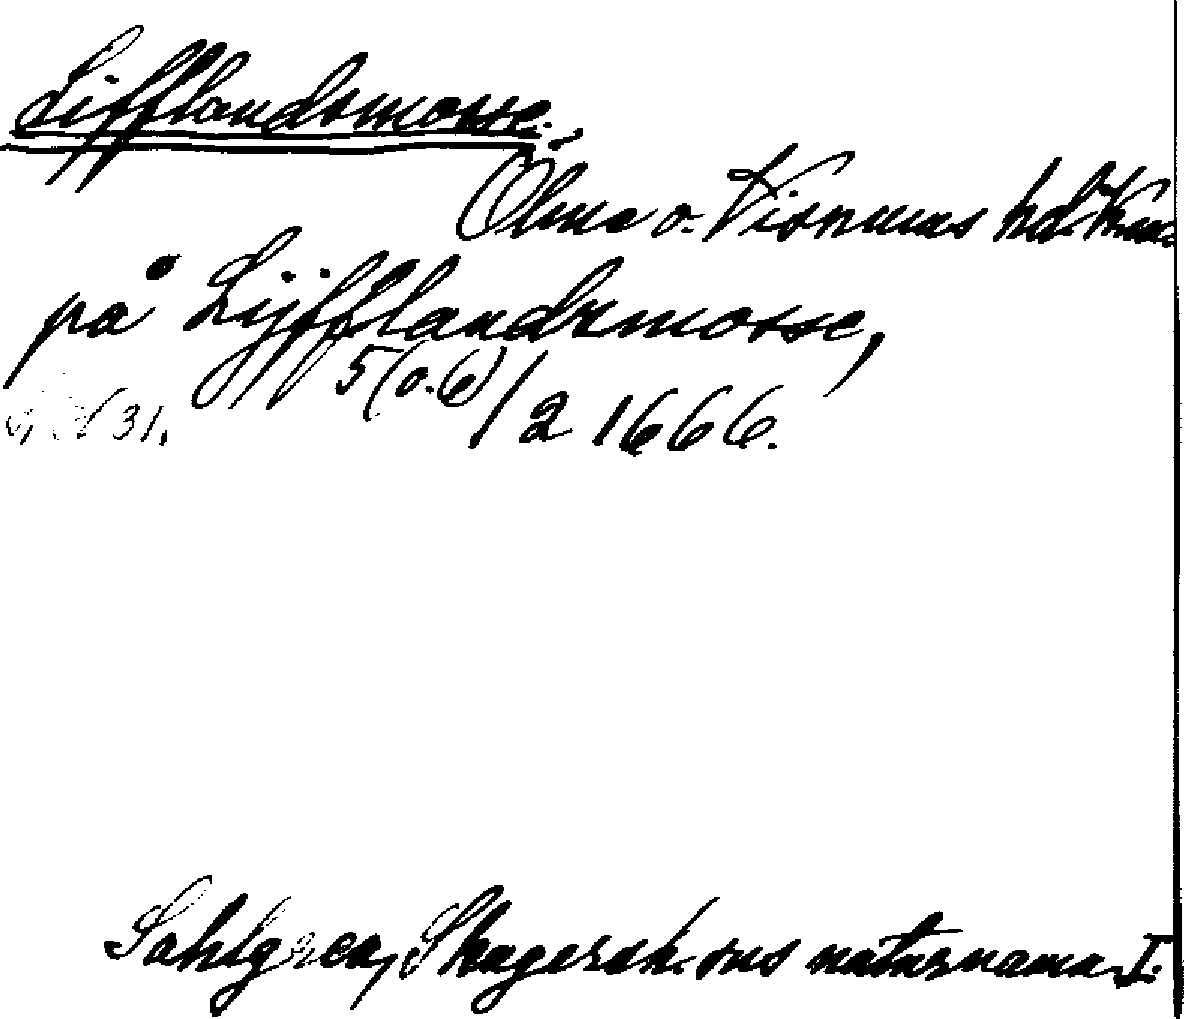 Lifflandsmosse.
Ölme o. Visnums hd. Värml.
på Lijfflandzmosse,
5(o.6)/2 1666.
Sahlgren, Skagershults naturnamn I.